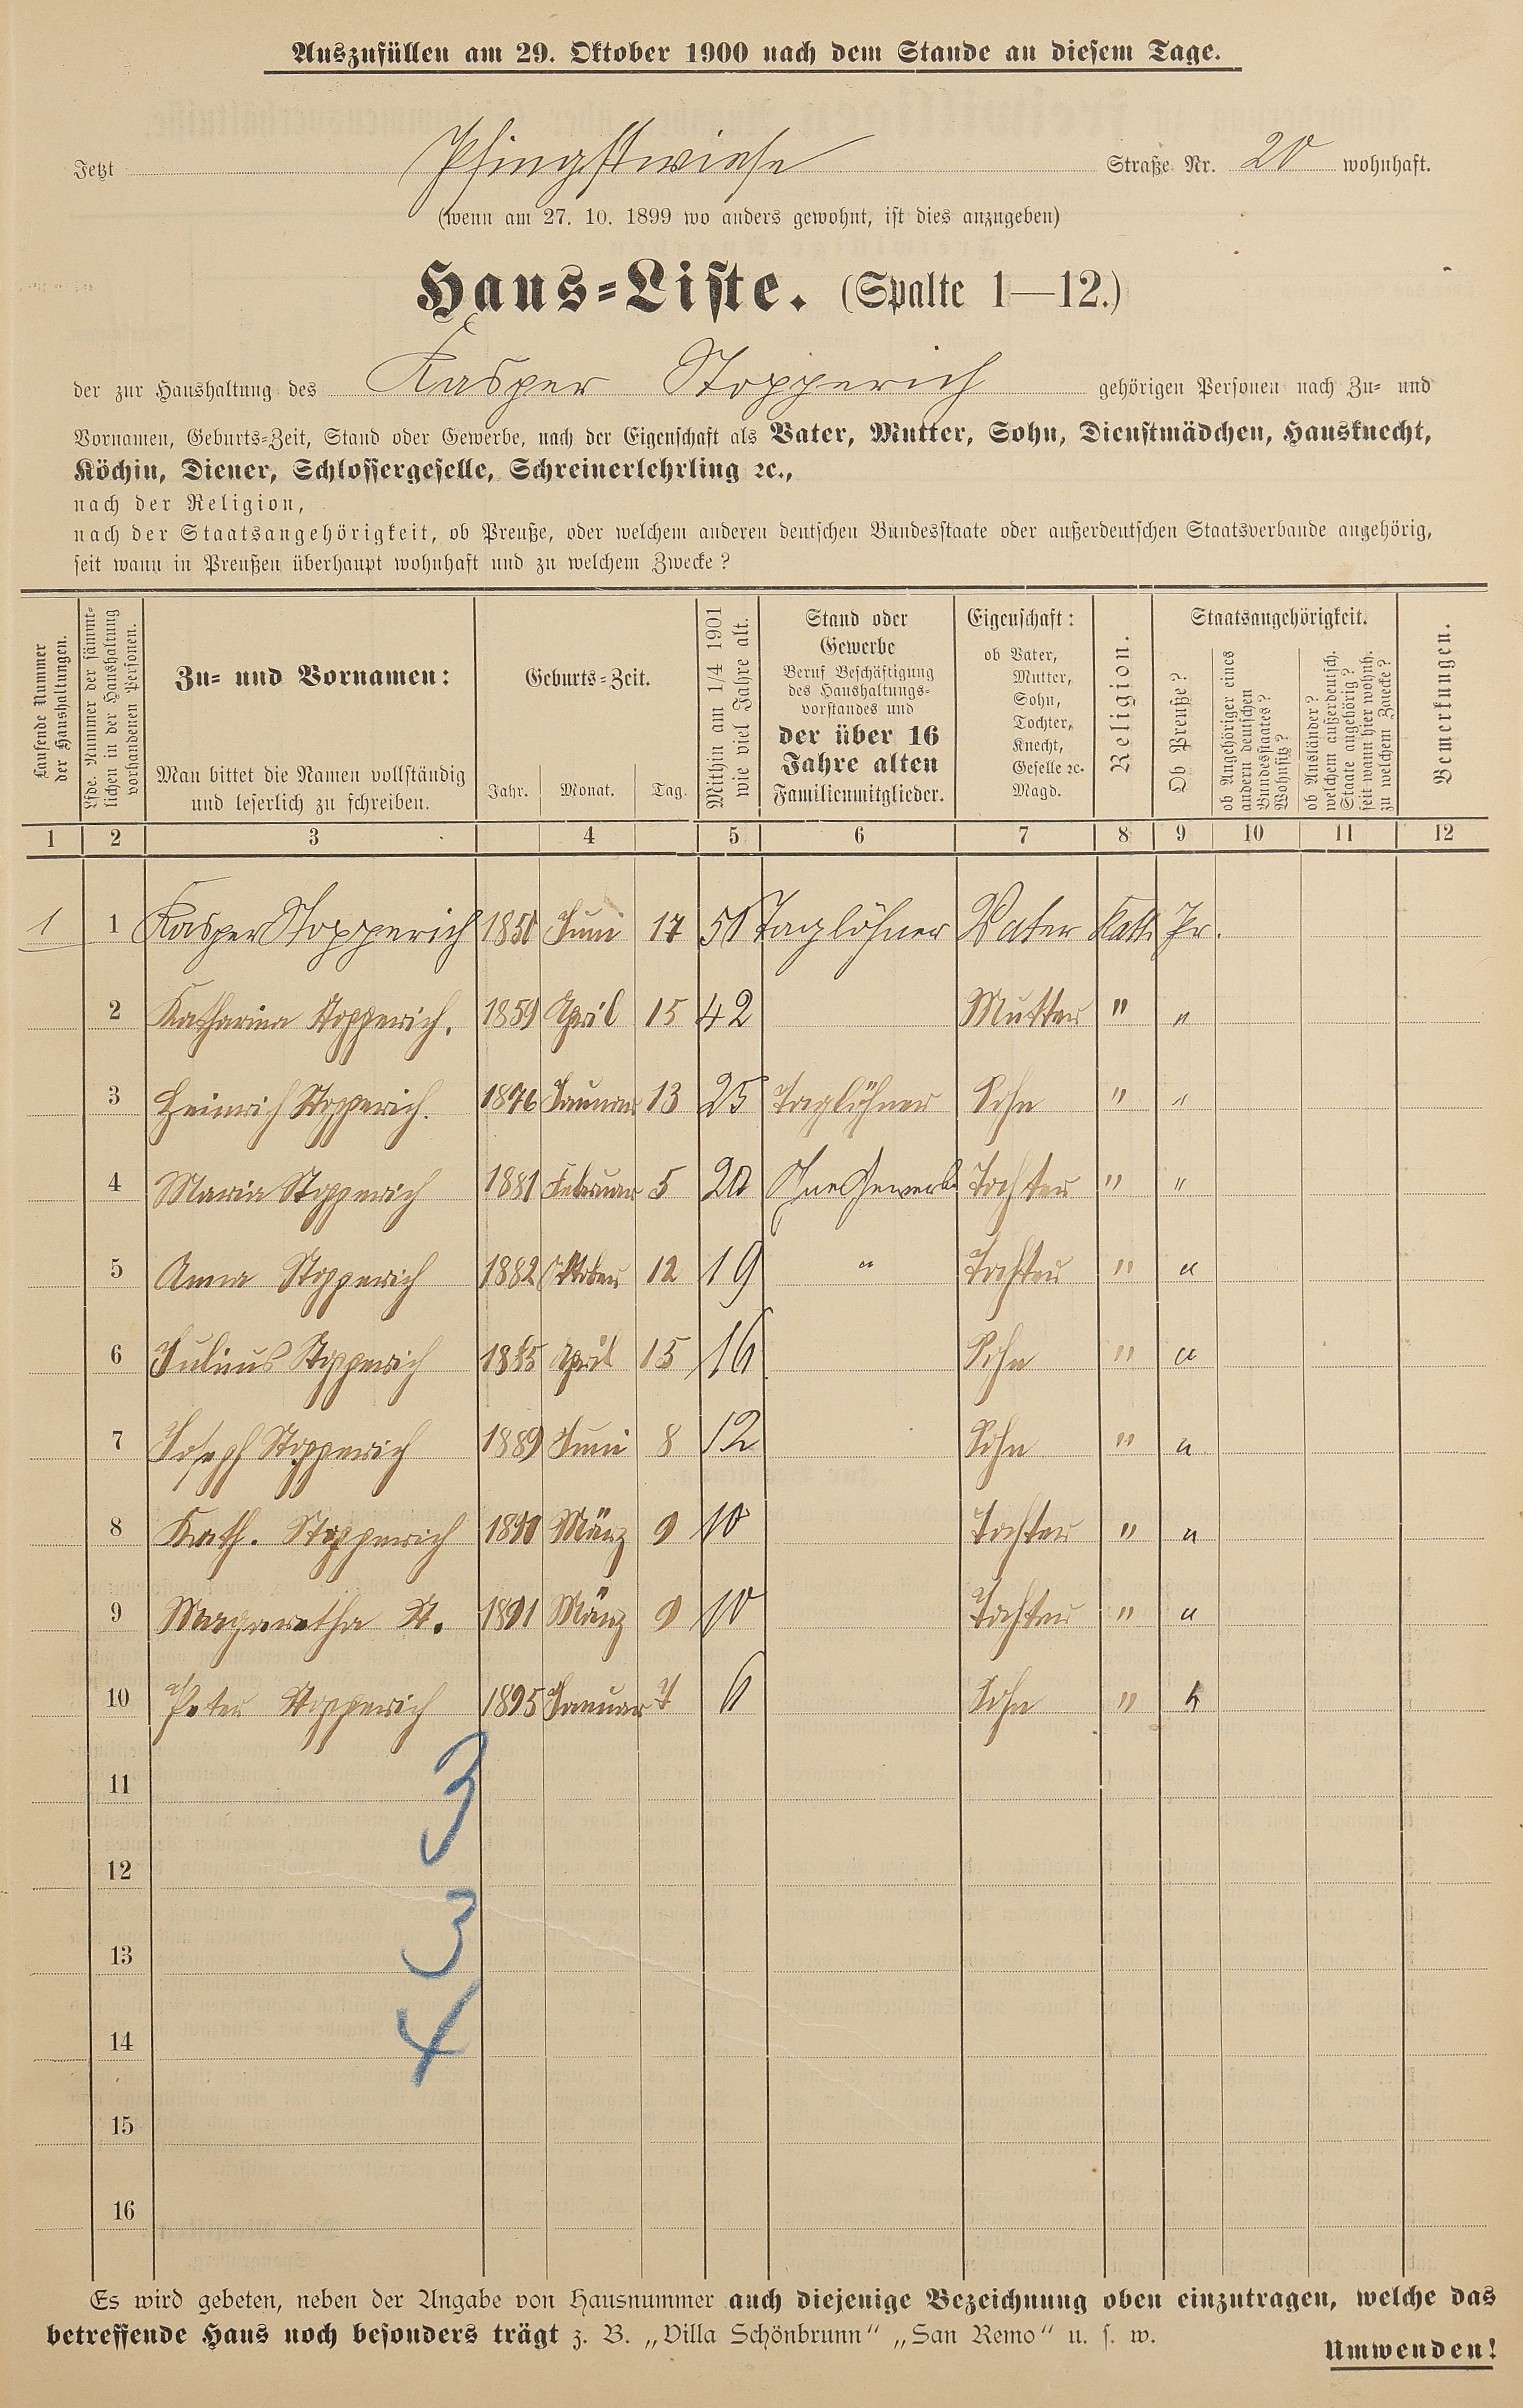 Auszufüllen am 29. Oktober 1900 nach dem Stande an diesem Tage.
Jetzt Pfingstwiese Straße Nr. 20 wohnhaft.
(wenn am 27. 10. 1899 wo anders gewohnt, ist dies anzugeben)
Haus-Liste. (Spalte 1—12.)
der zur Haushaltung des Kasper Stopperich gehörigen Personen nach Zu- und
Vornamen, Geburts-Zeit, Stand oder Gewerbe, nach der Eigenschaft als Vater, Mutter, Sohn, Dienstmädchen, Hausknecht,
Köchin, Diener, Schlossergeselle, Schreinerlehrling ꝛc.,
nach der Religion,
nach der Staatsangehörigkeit, ob Preuße, oder welchem anderen deutschen Bundesstaate oder außerdeutschen Staatsverbande angehörig,
seit wann in Preußen überhaupt wohnhaft und zu welchem Zwecke?
Laufende Nummer
der Haushaltungen.
Lfde. Nummer der sämmt-
lichen in der Haushaltung
vorhandenen Personen.
Zu- und Vornamen:
Man bittet die Namen vollständig
und leserlich zu schreiben.
Geburts-Zeit.
Jahr. Monat. Tag.
Mithin am 1/4 1901
wie viel Jahre alt.
Stand oder
Gewerbe
Beruf Beschäftigung
des Haushaltungs-
vorstandes und
der über 16
Jahre alten
Familienmitglieder.
Eigenschaft:
ob Vater,
Mutter,
Sohn,
Tochter,
Knecht,
Geselle ꝛc.
Magd.
Religion.
Staatsangehörigkeit.
Ob Preuße?
ob Angehöriger eines
andern deutschen
Bundesstaates?
Wohnsitz?
ob Ausländer?
welchem außerdeutsch.
Staate angehörig?
seit wann hier wohnh.
zu welchem Zwecke?
Bemerkungen.
1 2 3 4 5 6 7 8 9 10 11 12
1 1 Kasper Stopperich 1850 Juni 17 50 Taglöhner Vater Kath. Pr.
2 Katharina Stopperich. 1859 April 15 42 Mutter " "
3 Heinrich Stopperich. 1876 Januar 13 25 Taglöhner Sohn " "
4 Maria Stopperich 1881 Februar 5 20 Ohne Gewerbe Tochter " "
5 Anna Stopperich 1882 Oktober 12 19 " Tochter " "
6 Julius Stopperich 1885 April 15 16 Sohn " "
7 Joseph Stopperich 1889 Juni 8 12 Sohn " "
8 Kath. Stopperich 1890 März 9 10 Tochter " "
9 Margaretha St. 1891 März 9 10 Tochter " "
10 Peter Stopperich 1895 Januar 7 6 Sohn " "
11
3
12
13
3
14
4
15
16
Es wird gebeten, neben der Angabe von Hausnummer auch diejenige Bezeichnung oben einzutragen, welche das
betreffende Haus noch besonders trägt z. B. „Villa Schönbrunn“ „San Remo“ u. s. w.
Umwenden!